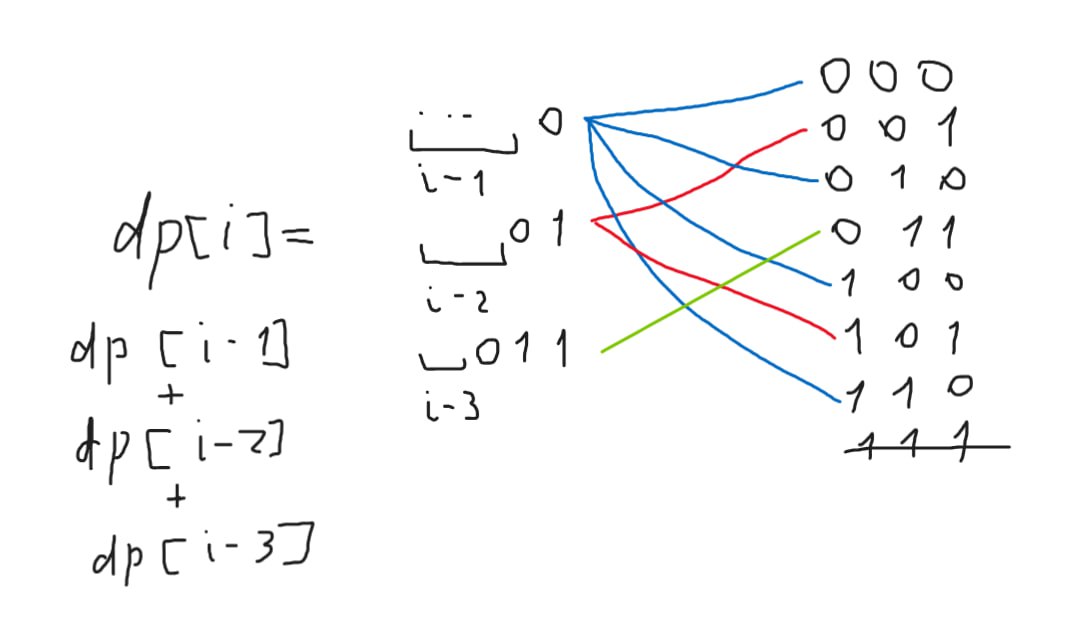 dp[i]=
dp[i-1]
+
dp[i-2]
+
dp[i-3]
... 0
i-1
0 1
i-2
0 1 1
i-3
0 0 0
0 0 1
0 1 0
0 1 1
1 0 0
1 0 1
1 1 0
1 1 1